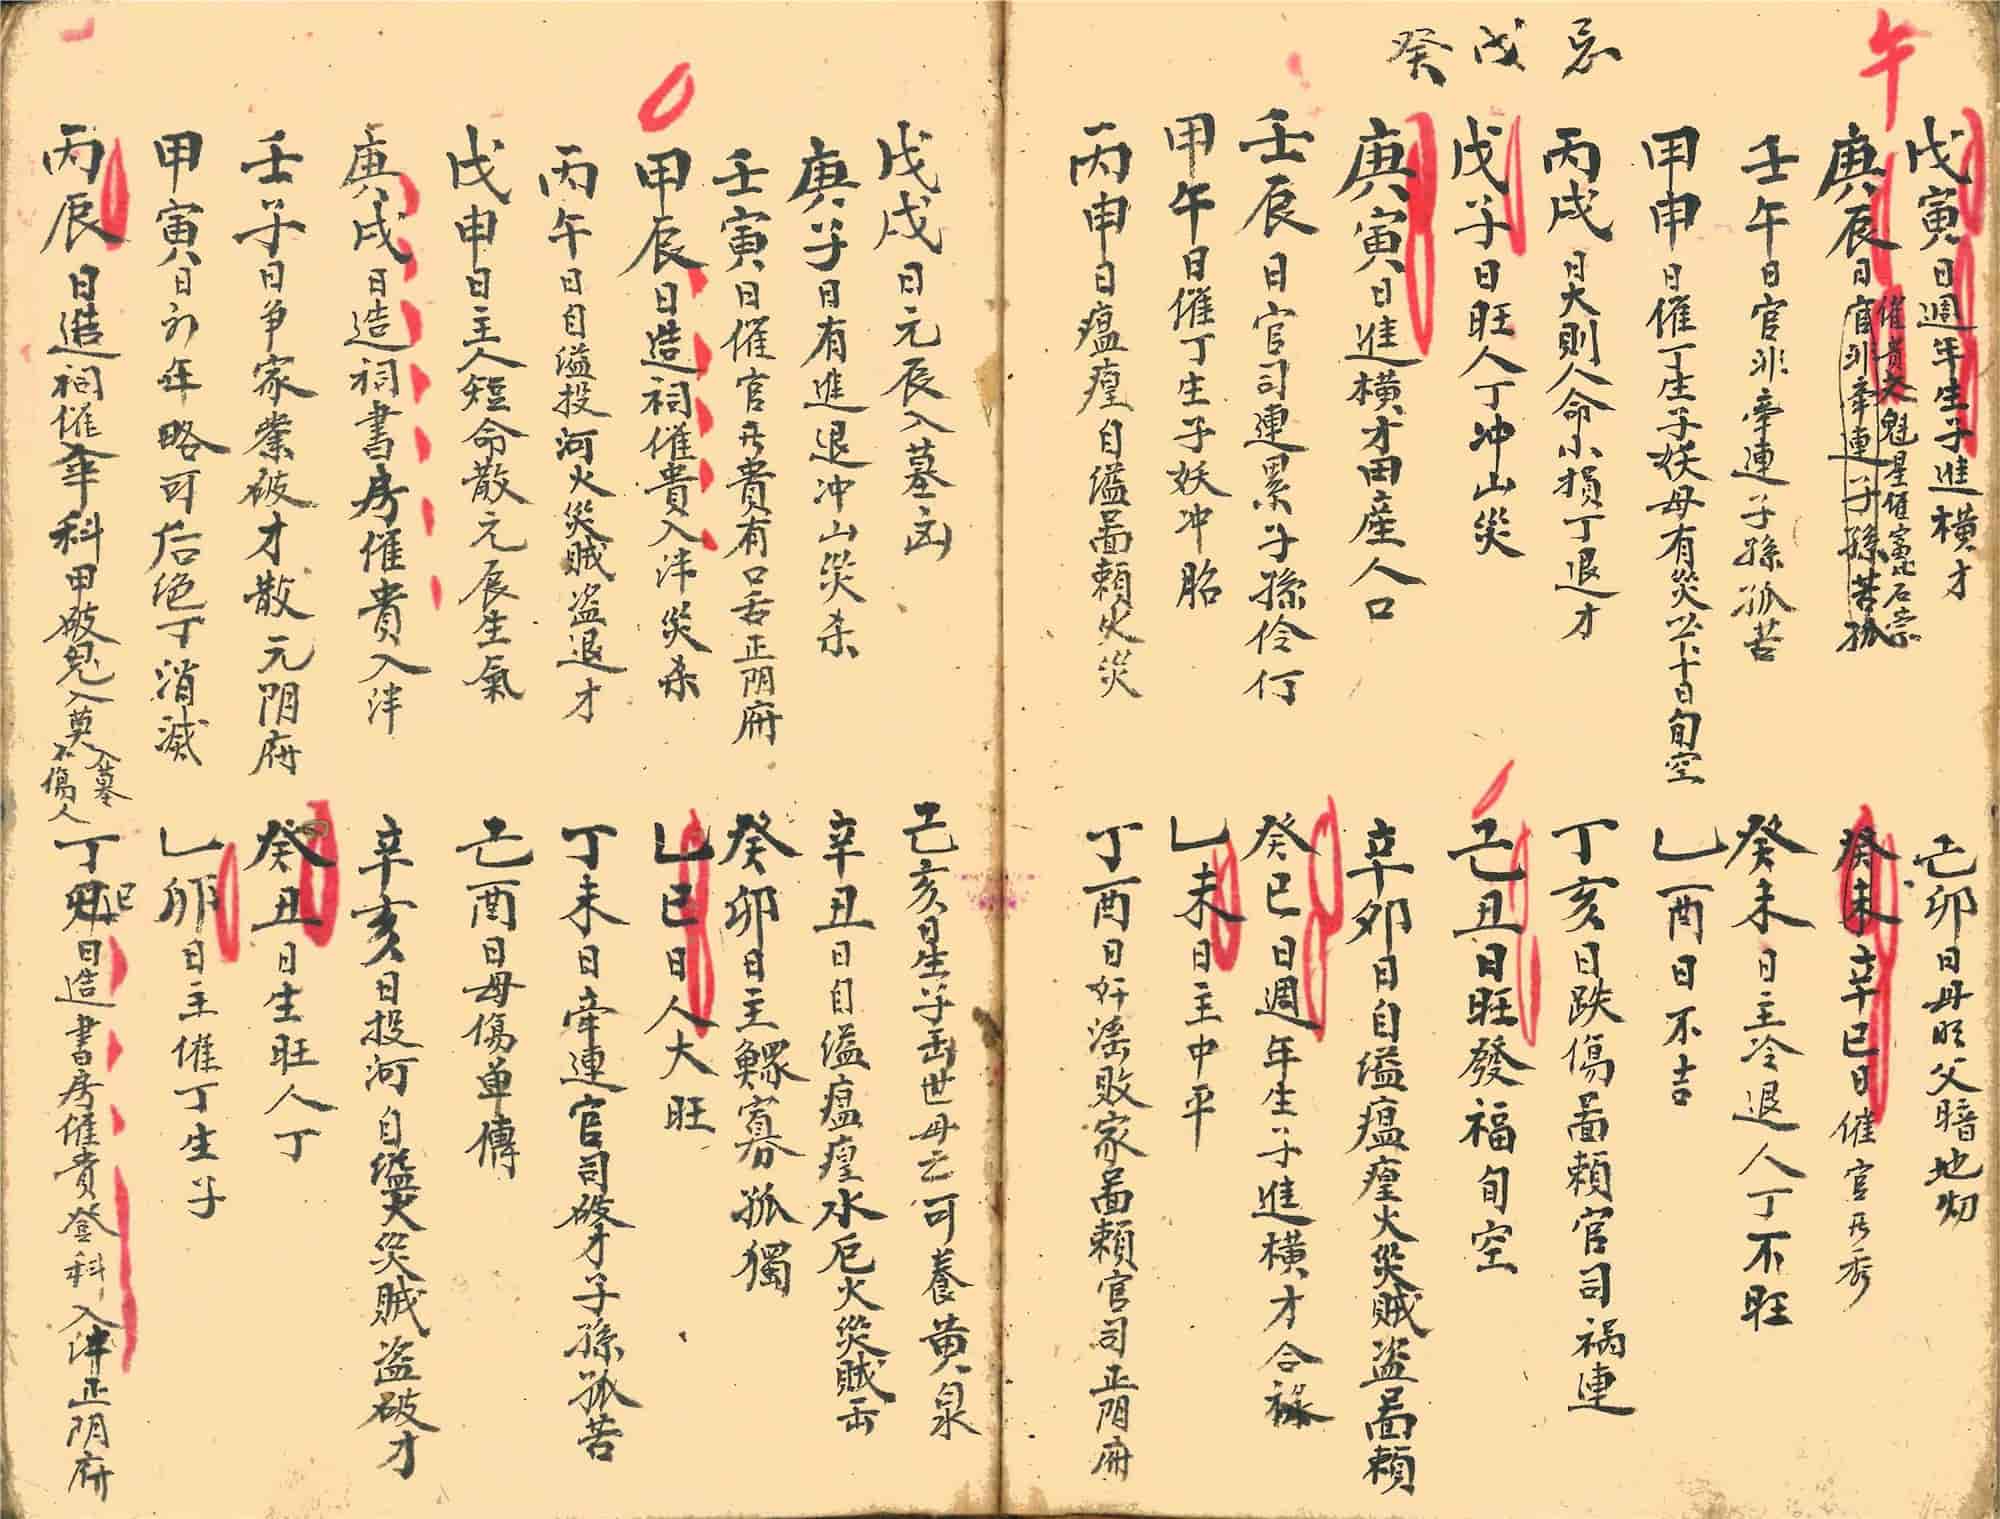 午
忌戊癸
戊寅日週年生子進橫才
催貴文魁星催富石崇
庚辰日官非牵連子孫苦孤
壬午日官非牵連子孫孤苦
甲申日催丁生子妖母有災六十日旬空
丙戌日大則人命小損丁退才
戊子日旺人丁冲山災
庚寅日進橫才田産人口
壬辰日官司連累子孫伶仃
甲午日催丁生子妖冲胎
丙申日瘟瘟自縊啚賴火災
己卯日毋旺父暗地劫
癸未辛巳日催官吊秀
癸未日主冷退人丁不旺
乚酉日不吉
丁亥日跌傷啚賴官司祸連
己丑日旺發福旬空
辛卯日自缢瘟瘟火災賊盗啚賴
癸巳日週年生子進橫才合祿
乚未日主中平
丁酉日奸淫敗家啚賴官司正阴府
戊戌日元辰入墓凶
庚子日有進退冲山災杀
壬寅日催官吊貴有口舌正阴府
甲辰日造祠催貴入泮災杀
丙午日自溢投河火災賊盗退才
戊申日主人短命散元辰生氣
庚戌日造祠書房催貴入泮
壬子日争家業破才散元阴府
甲寅日初年略可后绝丁消滅
丙辰日造祠催華科甲破鬼入莫
入墓不傷人
己亥日星子缶世母云可養黄泉
辛丑日自缢瘟瘟水厄火災賊缶
癸卯日主鰥寡孤獨
乚巳日人大旺
丁未日牵連官司破才子孫孤苦
己酉日母傷单傳
辛亥日投河自缢火災賊盗破才
癸丑日生旺人丁
乚卯日主催丁生子
丁巳日造書房催貴登科入泮正阴府